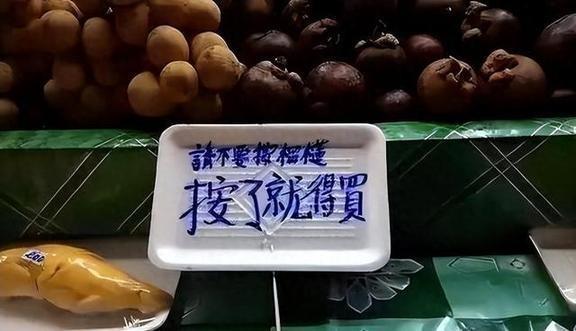 請不要按榴槤
按了就得買
200